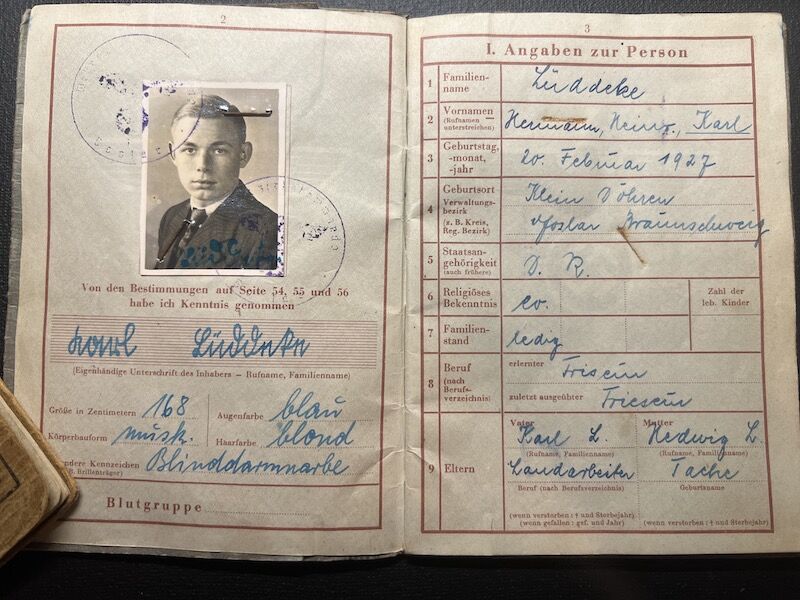 2
Von den Bestimmungen auf Seite 54, 55 und 56
habe ich Kenntnis genommen
Karl Lüddeke
(Eigenhändige Unterschrift des Inhabers – Rufname, Familienname)
Größe in Zentimetern 168
Augenfarbe blau
Körperbauform musk.
Haarfarbe blond
Kennzeichen Blinddarmnarbe
Brillenträger)
Blutgruppe
3
I. Angaben zur Person
1 Familien-
name
Lüddeke
2 Vornamen
(Rufnamen
unterstreichen)
Hermann, Heinz, Karl
3 Geburtstag,
-monat,
-jahr
20. Februar 1927
4 Geburtsort
Verwaltungs-
bezirk
(z. B. Kreis,
Reg. Bezirk)
Klein Döhren
Goslar Braunschweig
5 Staatsan-
gehörigkeit
(auch frühere)
D. R.
6 Religiöses
Bekenntnis
ev.
Zahl der
leb. Kinder
7 Familien-
stand
ledig
8 Beruf
(nach
Berufs-
verzeichnis)
erlernter
zuletzt ausgeübter
9 Eltern
Vater
Karl L.
(Rufname, Familienname)
Landarbeiter
Beruf (nach Berufsverzeichnis)
(wenn verstorben: † und Sterbejahr)
(wenn gefallen: gef. und Jahr)
Mutter
Hedwig L.
(Rufname, Familienname)
Tache
Geburtsname
(wenn verstorben: † und Sterbejahr)